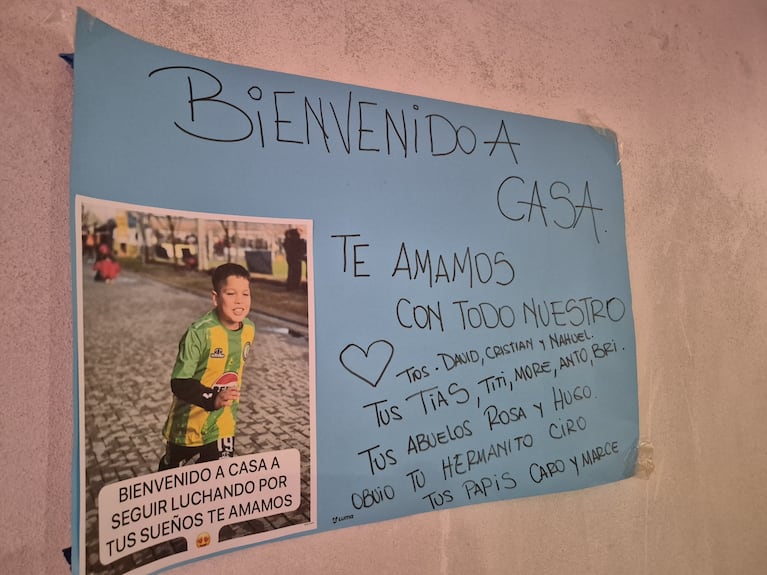 BIENVENIDO A
CASA.
TE AMAMOS
CON TODO NUESTRO
♡ TIOS. DAVID, CRISTIAN Y NAHUEL.
TUS TIAS, TITI, MORE, ANTO, BRI.
TUS ABUELOS ROSA Y HUGO.
OBVIO TU HERMANITO CIRO
TUS PAPIS CARO Y MARCE
19
BIENVENIDO A CASA A
SEGUIR LUCHANDO POR
TUS SUEÑOS TE AMAMOS
😍